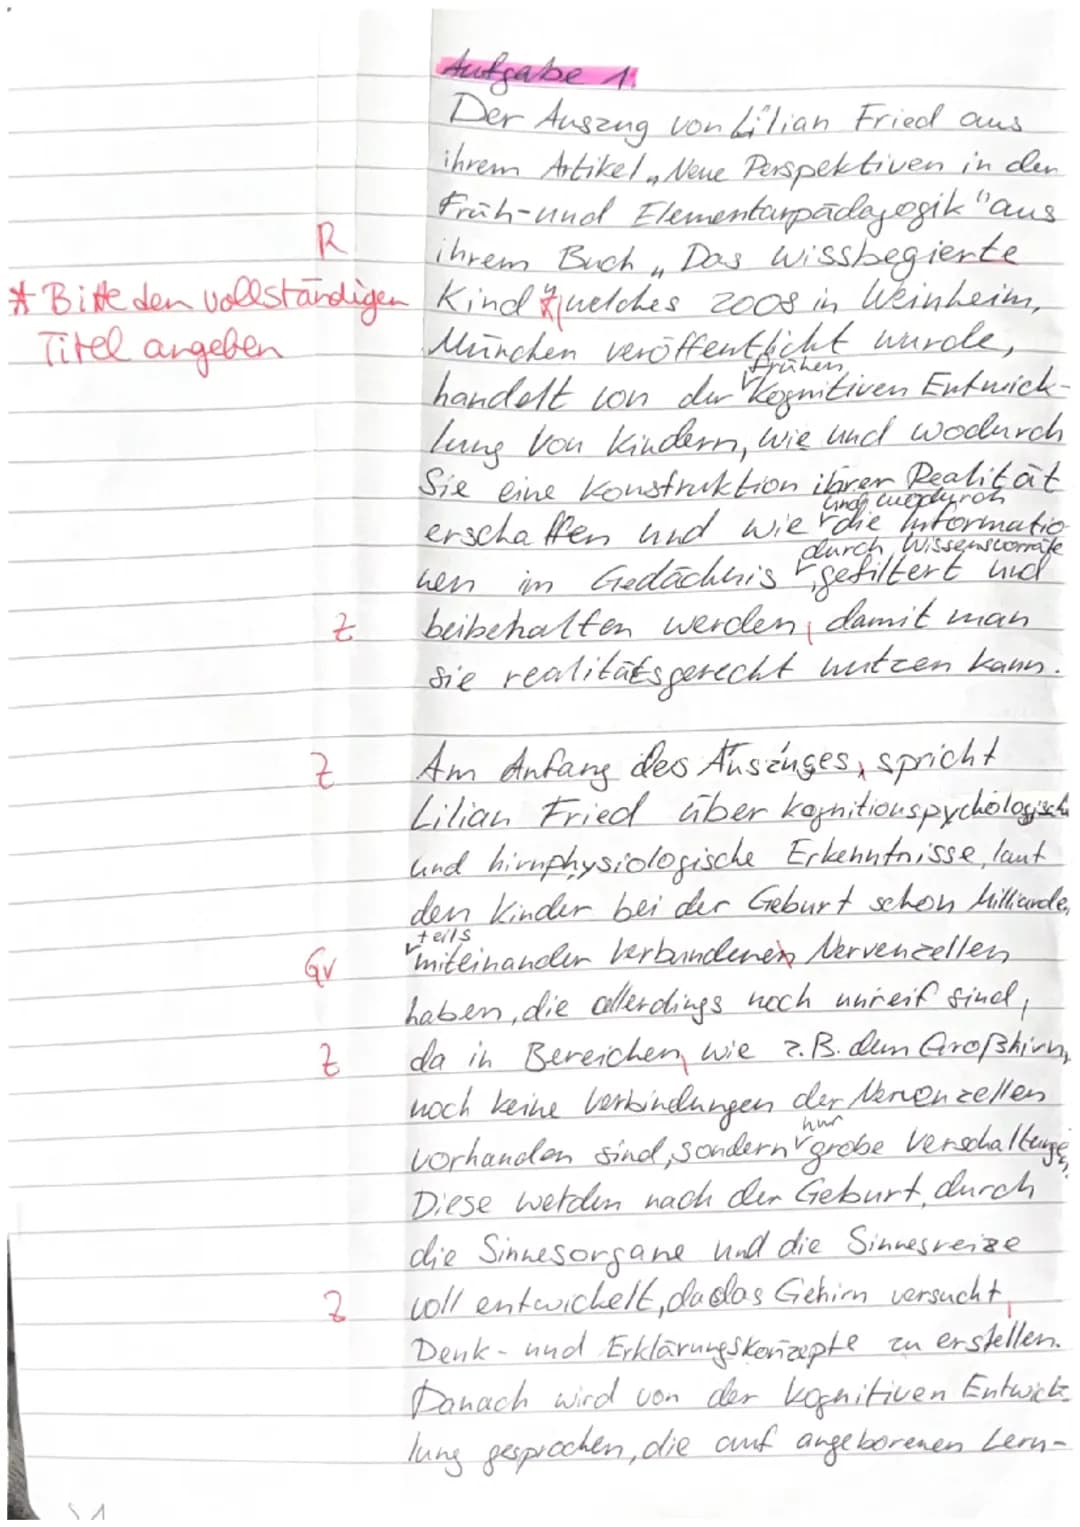 Aufgabe 1:
Der Auszug von Lilian Fried aus
ihrem Artikel „Neue Perspektiven in der
Früh- und Elementarpädagogik" aus
R
ihrem Buch „Das wissbegierte
* Bitte den vollständigen Titel angeben
Kind"* welches 2008 in Weinheim,
München veröffentlicht wurde,
frühen
handelt von der kognitiven Entwick-
lung von Kindern, wie und wodurch
Sie eine Konstruktion ihrer Realität
und wodurch
erschaffen und wie die Informatio
durch Wissensvorräte
nen im Gedächnis gefiltert und
Z
beibehalten werden, damit man
sie realitätsgerecht nutzen kann.
Z
Am Anfang des Auszuges, spricht
Lilian Fried über kognitionspychologisch
und hirnphysiologische Erkenntnisse, laut
den Kinder bei der Geburt schon Milliarde,
teils
Gr
miteinander verbundenen Nervenzellen
haben, die allerdings noch unreif sind,
Z
da in Bereichen, wie z.B. dem Großhirn,
noch keine Verbindungen der Nervenzellen
nur
vorhanden sind, sondern grobe Verschaltunge.
Diese werden nach der Geburt, durch
die Sinnesorgane und die Sinnesreize
Z
voll entwickelt, da das Gehirn versucht,
Denk- und Erklärungskonzepte zu erstellen.
Danach wird von der kognitiven Entwick-
lung gesprochen, die auf angeborenen Lern-